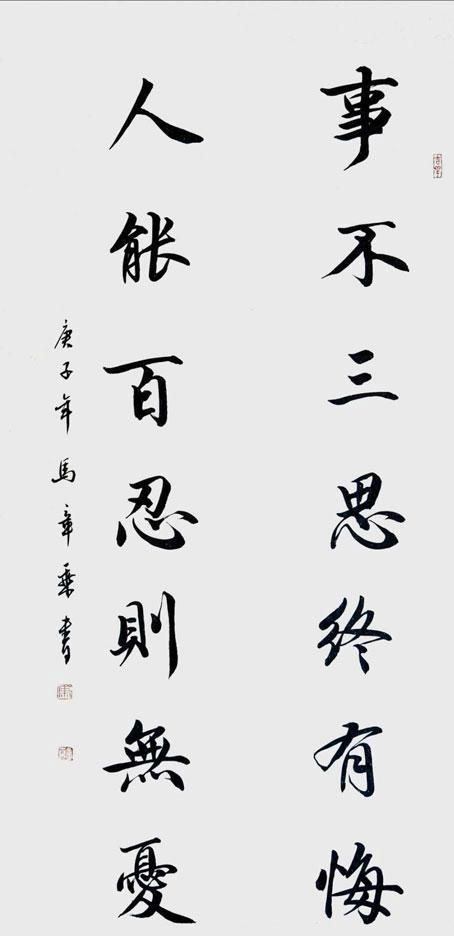 事不三思終有悔
人能百忍則無憂
庚子年馬章乘書